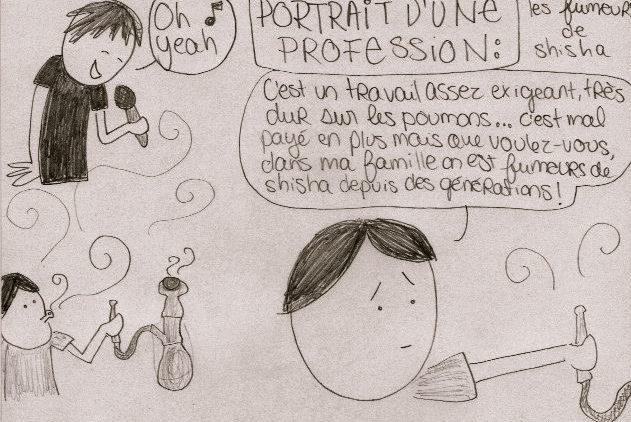 Oh
yeah
PORTRAIT D'UNE
PROFESSION:
les fumeurs
de
shisha
C'est un travail assez exigeant, très
dur sur les poumons... c'est mal
payé en plus mais que voulez-vous,
dans ma famille on est fumeurs de
shisha depuis des générations!